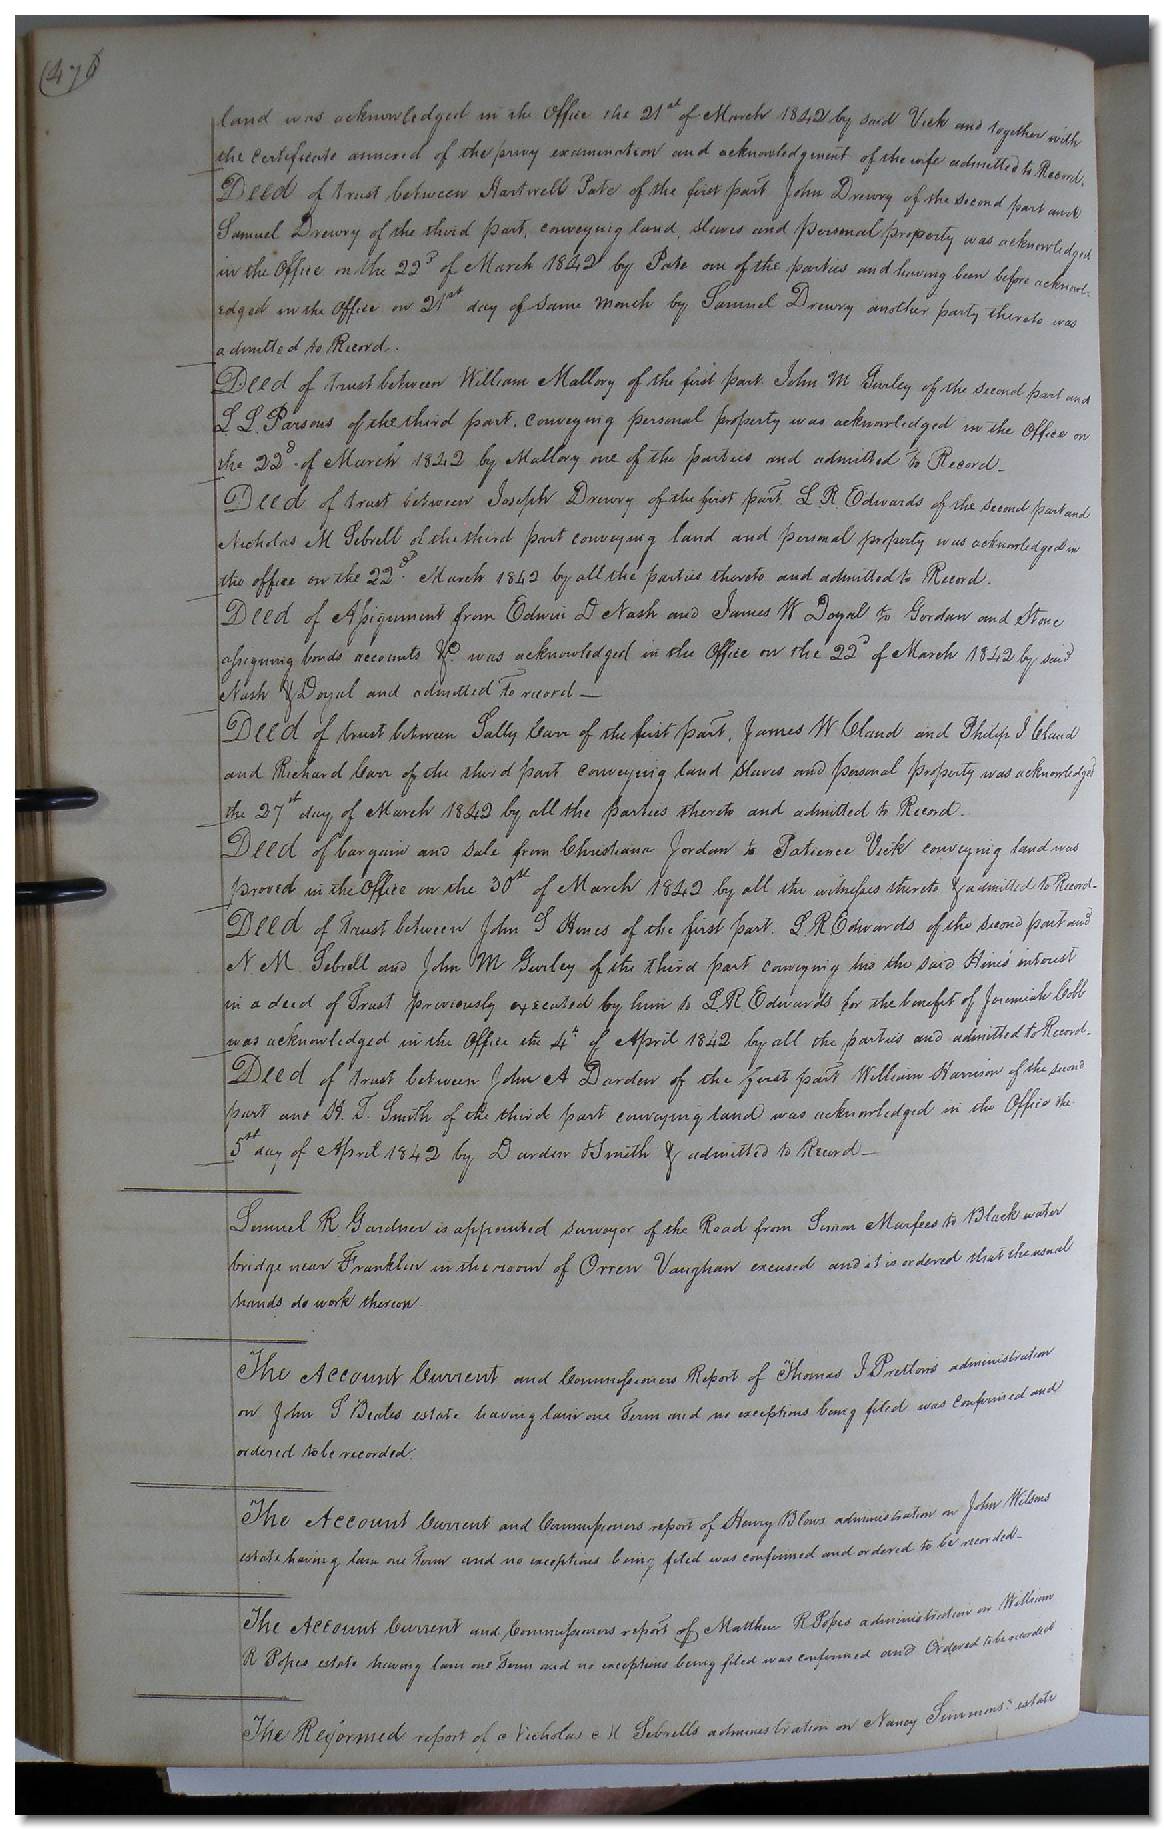 (476)
land was acknowledged in the Office the 21st of March 1842 by said Vick and together with
the Certificate annexed of the privy examination and acknowledgment of the wife admitted to Record.
Deed of trust between Hartwell Pate of the first part John Drewry of the second part and
Samuel Drewry of the third part, conveying land, slaves and personal property was acknowledged
in the Office on the 22d of March 1842 by Pate one of the parties and having been before acknowl-
edged in the Office on 21st day of same month by Samuel Drewry another party thereto was
admitted to Record.
Deed of trust between William Mallory of the first part John M Gurley of the second part and
L. L. Parsons of the third part, conveying personal property was acknowledged in the Office on
the 22d of March 1842 by Mallory one of the parties and admitted to Record_
Deed of trust between Joseph Drewry of the first part L. R. Edwards of the second part and
Nicholas M Sebrell of the third part conveying land and personal property was acknowledged in
the office on the 22d. March 1842 by all the parties thereto and admitted to Record.
Deed of Assignment from Edwin D Nash and James W Doyal to Gordan and Stone
assigning bonds accounts &c. was acknowledged in the Office on the 22d of March 1842 by said
Nash & Doyal and admitted to record_
Deed of trust between Sally Carr of the first part, James W Claud and Philip I Claud
and Richard Carr of the third part conveying land slaves and personal property was acknowledged
the 27st day of March 1842 by all the parties thereto and admitted to Record.
Deed of bargain and sale from Christiana Jordan to Patience Vick conveying land was
proved in the Office on the 30st of March 1842 by all the witnesses thereto & admitted to Record-
Deed of trust between John S Hines of the first part. L R Edwards of the second part and
N M. Sebrell and John M Gurley of the third part conveying his the said Hines interest
in a deed of Trust previously executed by him to L R Edwards for the benefit of Jeremiah Cobb
was acknowledged in the Office the 4th of April 1842 by all the parties and admitted to Record.
Deed of trust between John A Darden of the first part William Harrison of the second
part and H. T. Smith of the third part conveying land was acknowledged in the Office the
5st day of April 1842 by Darden & Smith & admitted to Record_
Samuel R Gardner is appointed surveyor of the Road from Simon Murfees to Black water
bridge near Franklin in the room of Orren Vaughan excused and it is ordered that the usual
hands do work thereon.
The Account Current and Commissioners Report of Thomas J Pretlows administration
on John S Beales estate having lain one Term and no exceptions being filed was confirmed and
ordered to be recorded.
The Account Current and Commissioners report of Henry Blows administration on John Wilsons
estate having lain one Term and no exceptions being filed was confirmed and ordered to be recorded_
The Account Current and Commissioners report of Matthew R Popes administration on William
R Popes estate having lain one Term and no exceptions being filed was confirmed and Ordered to be recorded
The Reformed report of Nicholas M Sebrells administration on Nancy Simmons' estate